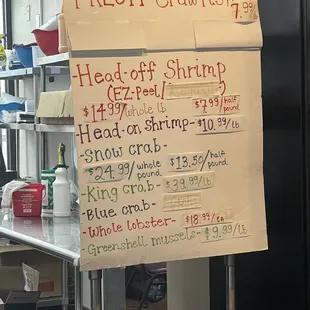 FRESH Crawfish
7.99
-Head-off Shrimp
(EZ-Peel/
$14.99/whole lb $7.99/half pound
Head-on shrimp-$10.99/lb
-Snow crab-
$24.99/whole pound $13.50/half pound
-King crab-$39.99/lb
-Blue crab-
-Whole lobster-$18.99/ea
-Greenshell mussels-$9.99/lb